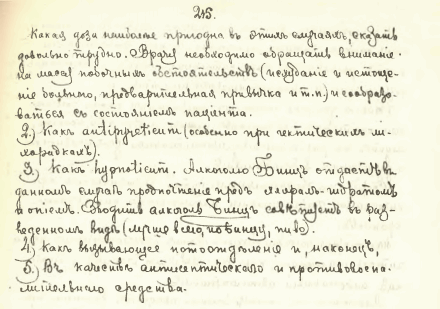 245.
Какая доза наиболее пригодна въ этихъ случаяхъ, сказать
довольно трудно. Врачу необходимо обращать вниманіе
на массу побочныхъ обстоятельствъ (исхуданіе и истоще-
ніе больного, предварительная привычка и т.п.) и сообразо-
ваться съ состояніемъ пацiента.
2.) Какъ antipyreticum (особенно при гектическихъ ли-
хорадкахъ).
3.) Какъ hypnoticum. Алкоголю Бинцъ отдаетъ въ
данномъ случаѣ предпочтеніе предъ хлоралъ-гидратомъ
и опіемъ. Вводить алкоголь Бинцъ совѣтуетъ въ раз-
веденномъ видѣ (лучше всего, по Бинцу, пиво).
4.) Какъ вызывающее потоотдѣленіе и, наконецъ,
5.) Въ качествѣ антисептическаго и противовоспа-
лительнаго средства.